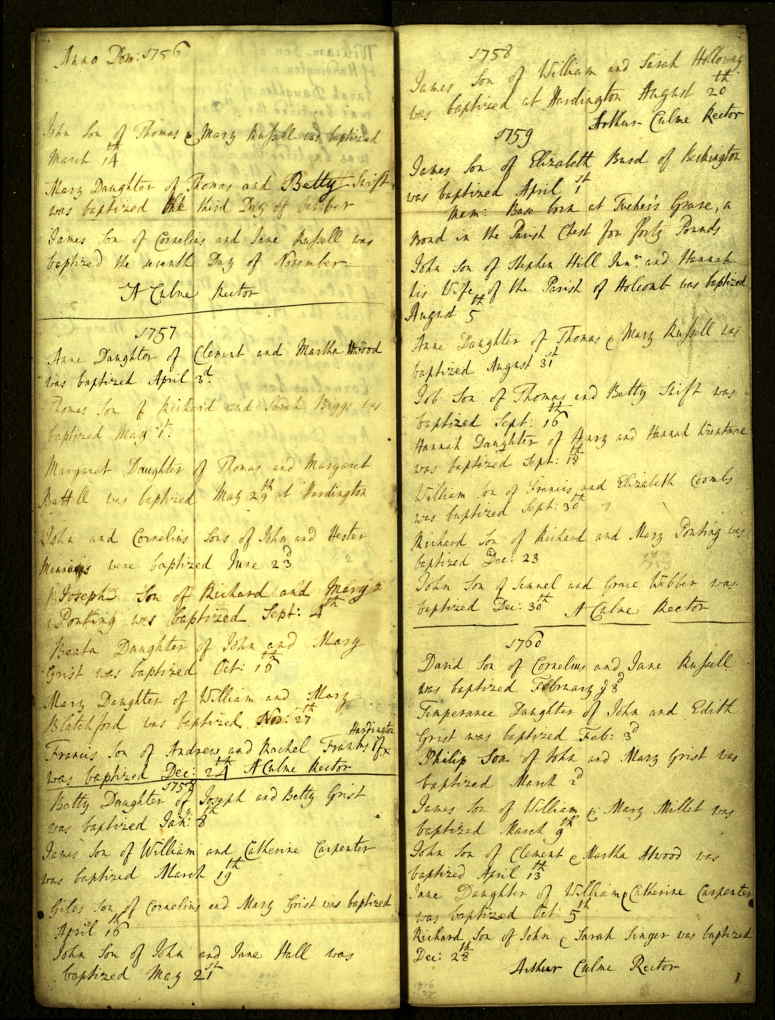 Anno Dom: 1756
John Son of Thomas & Mary Russell was baptized
March 14
Mary Daughter of Thomas and Betty Swift
was baptized the third Day of October
James Son of Cornelius and Jane Russell was
baptized the seventh Day of November
A Culme Rector
1757
Anne Daughter of Clement and Martha Atwood
was baptized April 3d.
Thomas Son of Richard and Sarah Biggs was
baptized May 1.
Margaret Daughter of Thomas and Margaret
was baptized May 29th at Hardington
John and Cornelius Sons of John and Hester
were baptized June 23d
Joseph Son of Richard and Mary
Ponting was baptized Sept: 4th
Beata Daughter of John and Mary
Grist was baptized Oct: 16th
Mary Daughter of William and Mary
Blatchford was baptized Nov: 27th
Hardington
Francis Son of Andrew and Rachel Franks
was baptized Dec: 24th A Culme Rector
1758
Betty Daughter of Joseph and Betty Grist
was baptized Jan: 8th
James Son of William and Catherine Carpenter
was baptized March 19th
Giles Son of Cornelius and Mary Grist was baptized
April 16th
John Son of John and Jane Hall was
baptized May 21st
1758
James Son of William and Sarah Holloway
was baptized at Hardington August 20th
Arthur Culme Rector
1759
James Son of Elizabeth Burd of
was baptized April 1st
Mem: Base born at a
Bond in the Parish Chest for forty Pounds
John Son of Stephen Hill Junr. and Hannah
his Wife of the Parish of Holcomb was baptized
August 5th
Anne Daughter of Thomas & Mary Russell was
baptized August 31st
Job Son of Thomas and Betty Swift was
baptized Sept: 16th
Hannah Daughter of Henry and Hannah
was baptized Sept: 18th
William Son of Francis and Elizabeth Coombs
was baptized Sept: 30th
Richard Son of Richard and Mary Ponting was
baptized Dec: 23
John Son of Samuel and Grace Webber was
baptized Dec: 30th A Culme Rector
1760
David Son of Cornelius and Jane Russell
was baptized February 3d
Temperance Daughter of John and Edith
Grist was baptized Feb: 3d
Philip Son of John and Mary Grist was
baptized March 2d
James Son of William & Mary Millet was
baptized March 9th
John Son of Clement & Martha Atwood was
baptized April 13th
Jane Daughter of William & Catherine Carpenter
was baptized Oct: 5th
Richard Son of John & Sarah Singer was baptized
Dec: 28th
Arthur Culme Rector